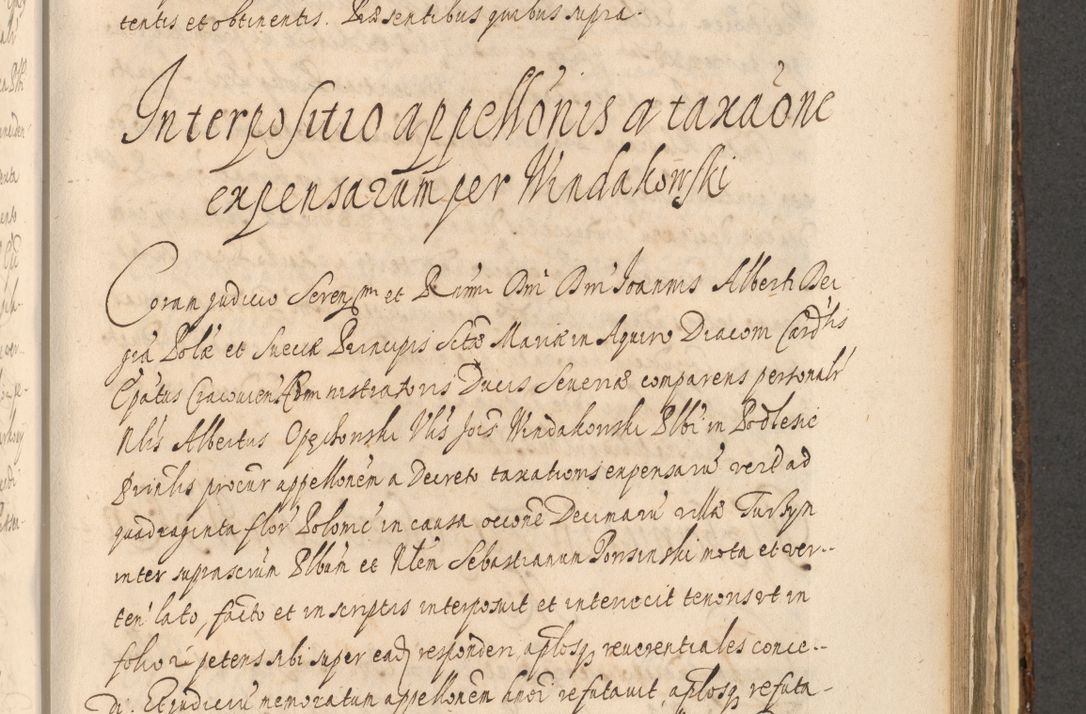 tentis et obtinentis. Præsentibus quibus supra.
Interpositio appellõnis a taxaõne
expensarum per Windakowski
Coram judicio Serenmi et R̃mi Dñi Dñi Joannis Alberti Dei
grã Polæ et Sueciæ Principis Sctæ Mariæ in Aquiro Diaconi Cardlis
Epatus Cracovien Administratoris Ducis Severiæ comparens personalr
Nblis Albertus Opęchowski Vlis Jois Windakowski Plbi in Podlesie
Prinlis procur appellonem a Decreto taxationis expensaru videl ad
quadraginta flor Polonic in causa occõne Decimaru villæ Tursyn
inter suprascrum Plbum et Nblem Sebastianum Porsinski mota et ver-
ten lato, facto et in scriptis interposuit et interiecit tenoris ut in
folio petens sibi super eadq responderi aplosq reverentiales conce-
di. Et judiciu memoratam appellonem huoi refutavit, aplosq refuta-